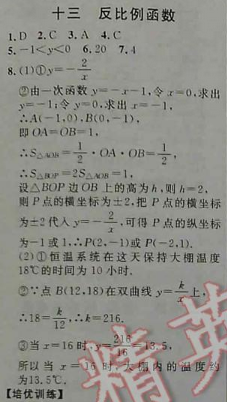 十三 反比例函数
1.D 2.C 3.A 4.C
5.-1<y<0 6.20 7.4
8.(1)①y=-2/x
②由一次函数y=-x-1,令x=0,求出
y=-1;令y=0,求出x=-1,
∴A(-1,0),B(0,-1),
即OA=OB=1,
∴S△AOB=1/2·OA·OB=1/2,
∴S△BOP=2S△AOB=1,
设△BOP边OB上的高为h,则h=2,
则P点的横坐标为±2,把P点的横坐标
为±2代入y=-2/x,可得P点的纵坐标
为-1或1,∴P(2,-1)或P(-2,1).
(2)①恒温系统在这天保持大棚温度
18℃的时间为10小时.
②∵点B(12,18)在双曲线y=k/x上,
∴18=k/12,∴k=216.
③当x=16时,y=216/16=13.5,
所以当x=16时,大棚内的温度约
为13.5℃.
【培优训练】
精英